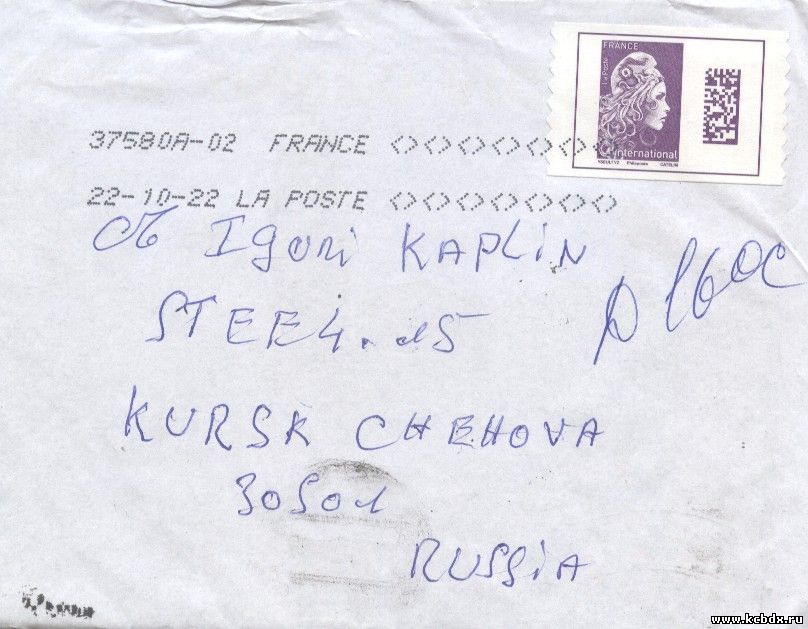 FRANCE
La Poste
international
PHILAPOSTE
37580A-02 FRANCE <><><><><><><><>
22-10-22 LA POSTE <><><><><><><><>
Igori KAPLIN
STEE4. 15
KURSK CHEHOVA
30501
RUSSiA
www.kcbdx.ru